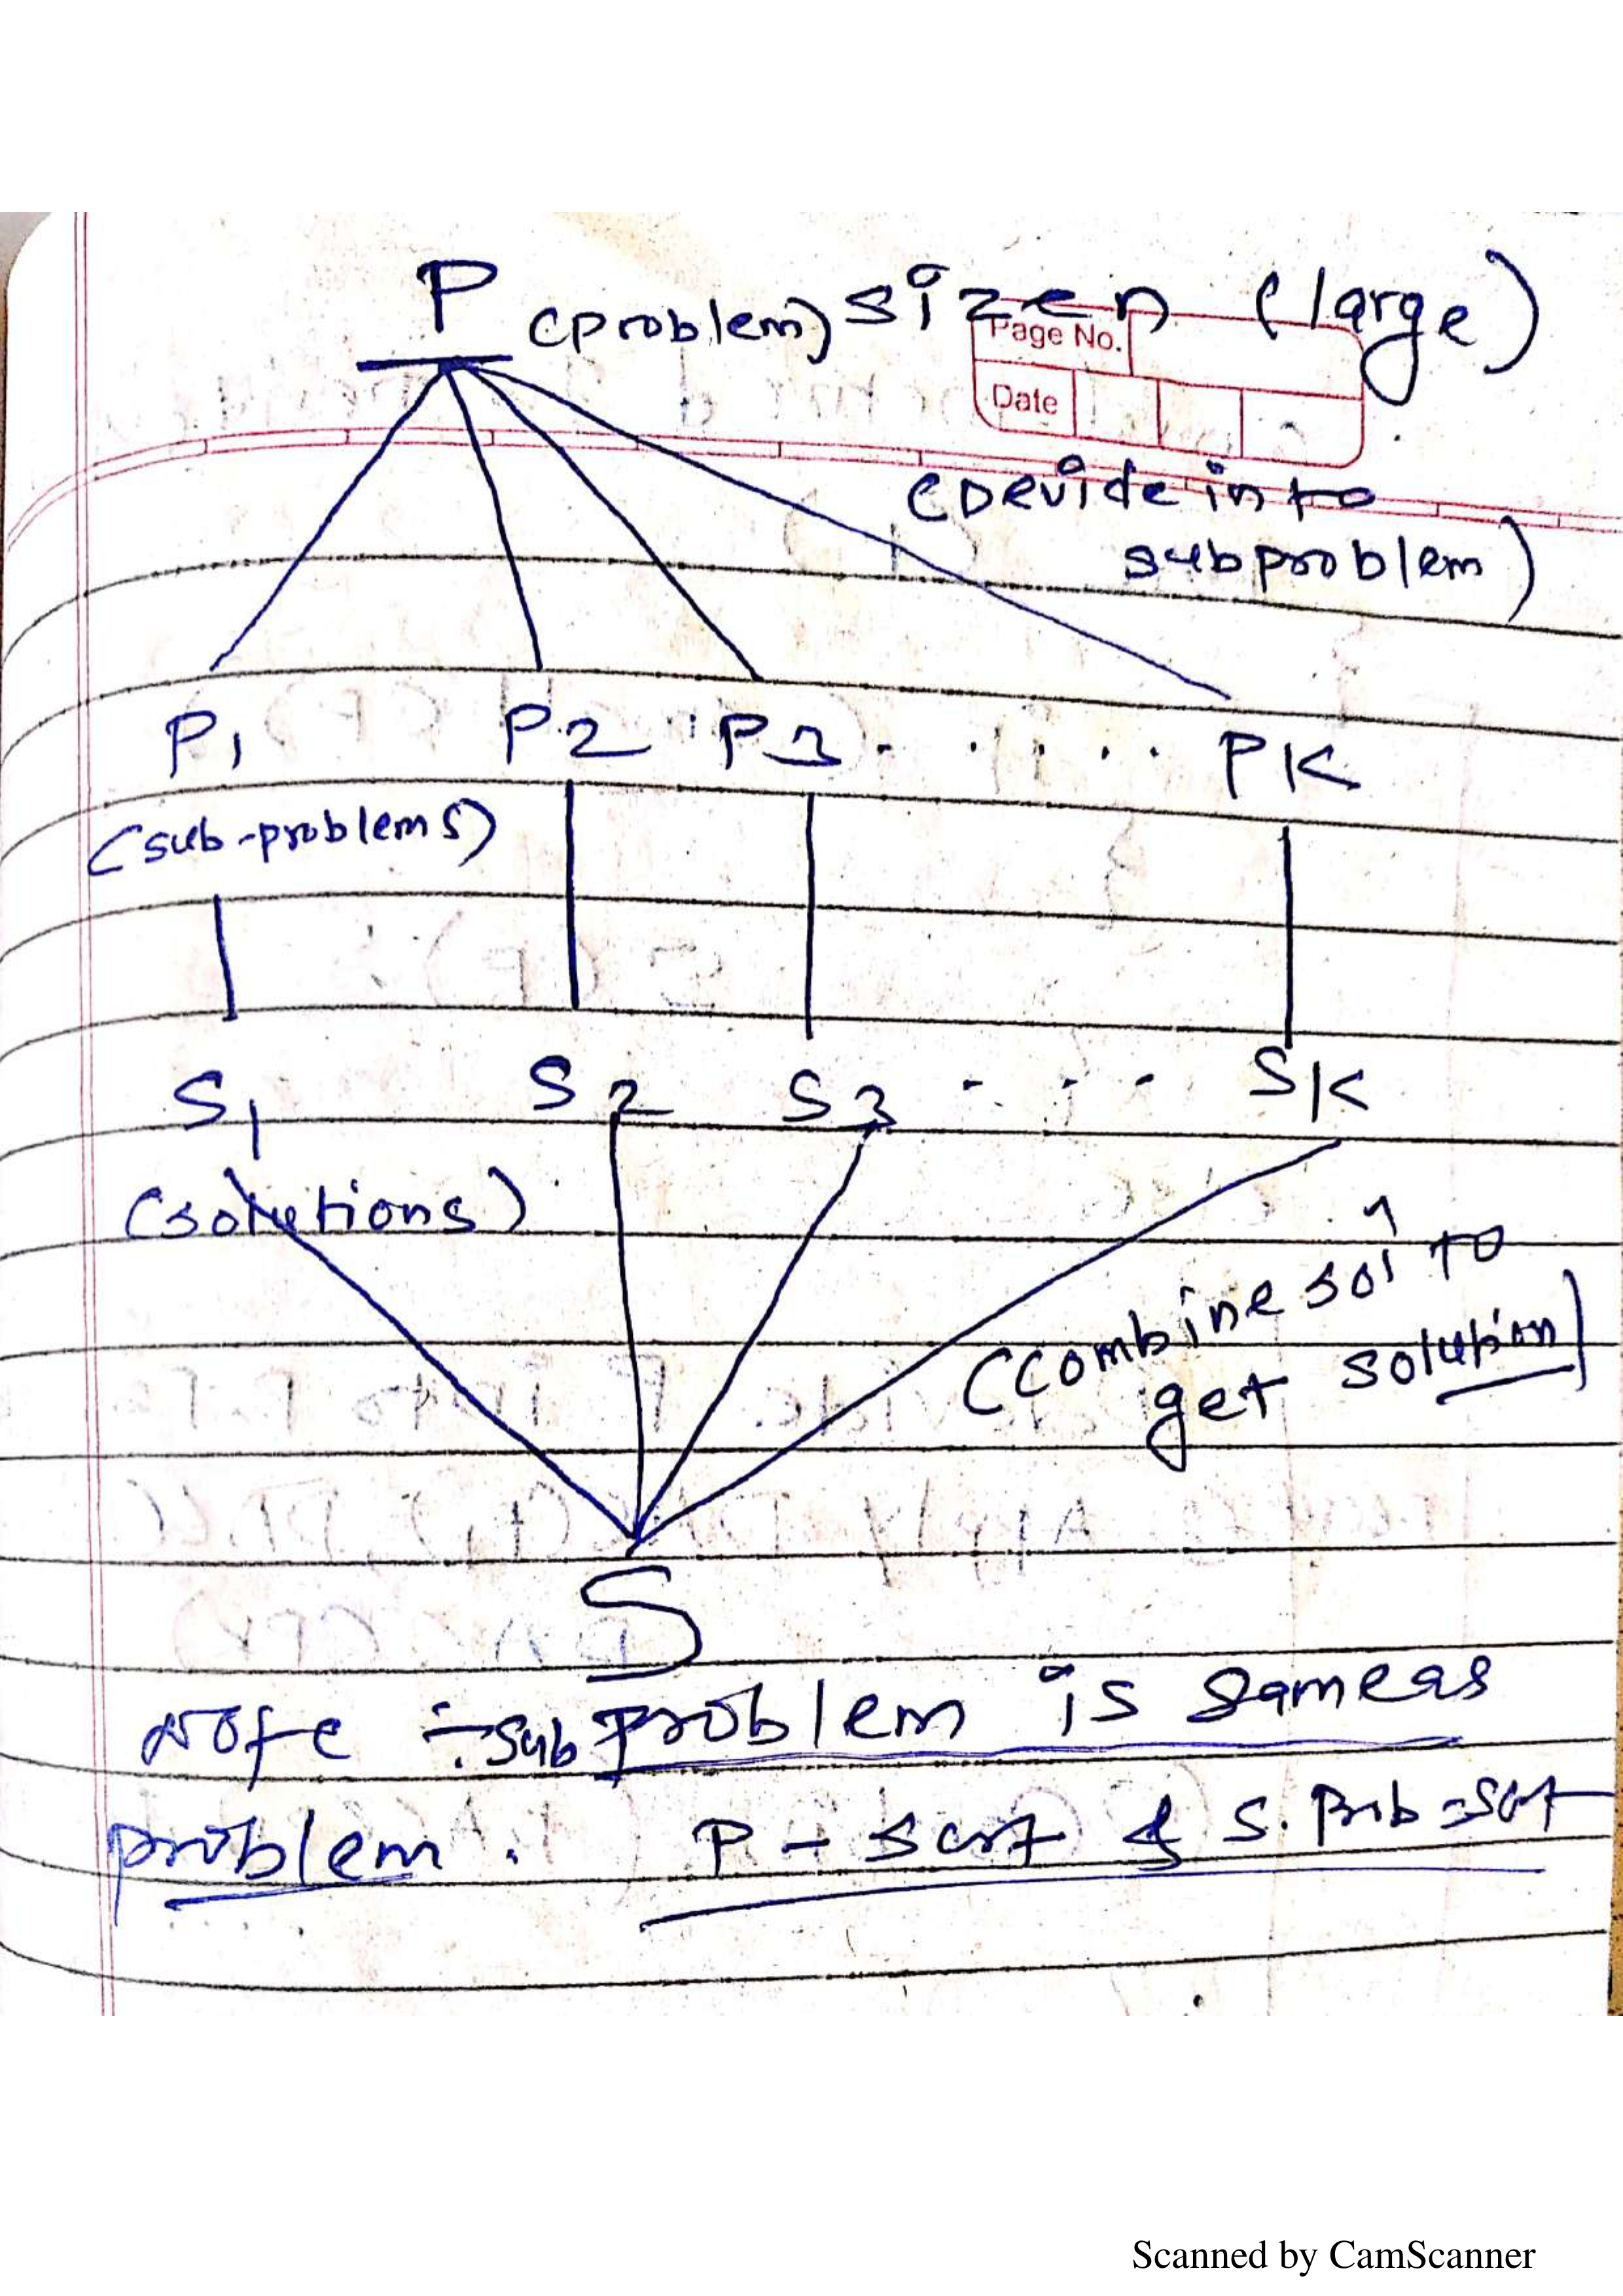 P (problem) size n (large)
Page No.
Date
(Devide into
subproblem)
P1 P2 P3 - . . . . PK
(sub-problems)
S1 S2 S3 - - - SK
(solutions)
(combine sol^n to
get solution)
S
Note :- sub problem is same as
problem . P - sort & S. Prob - sort
Scanned by CamScanner